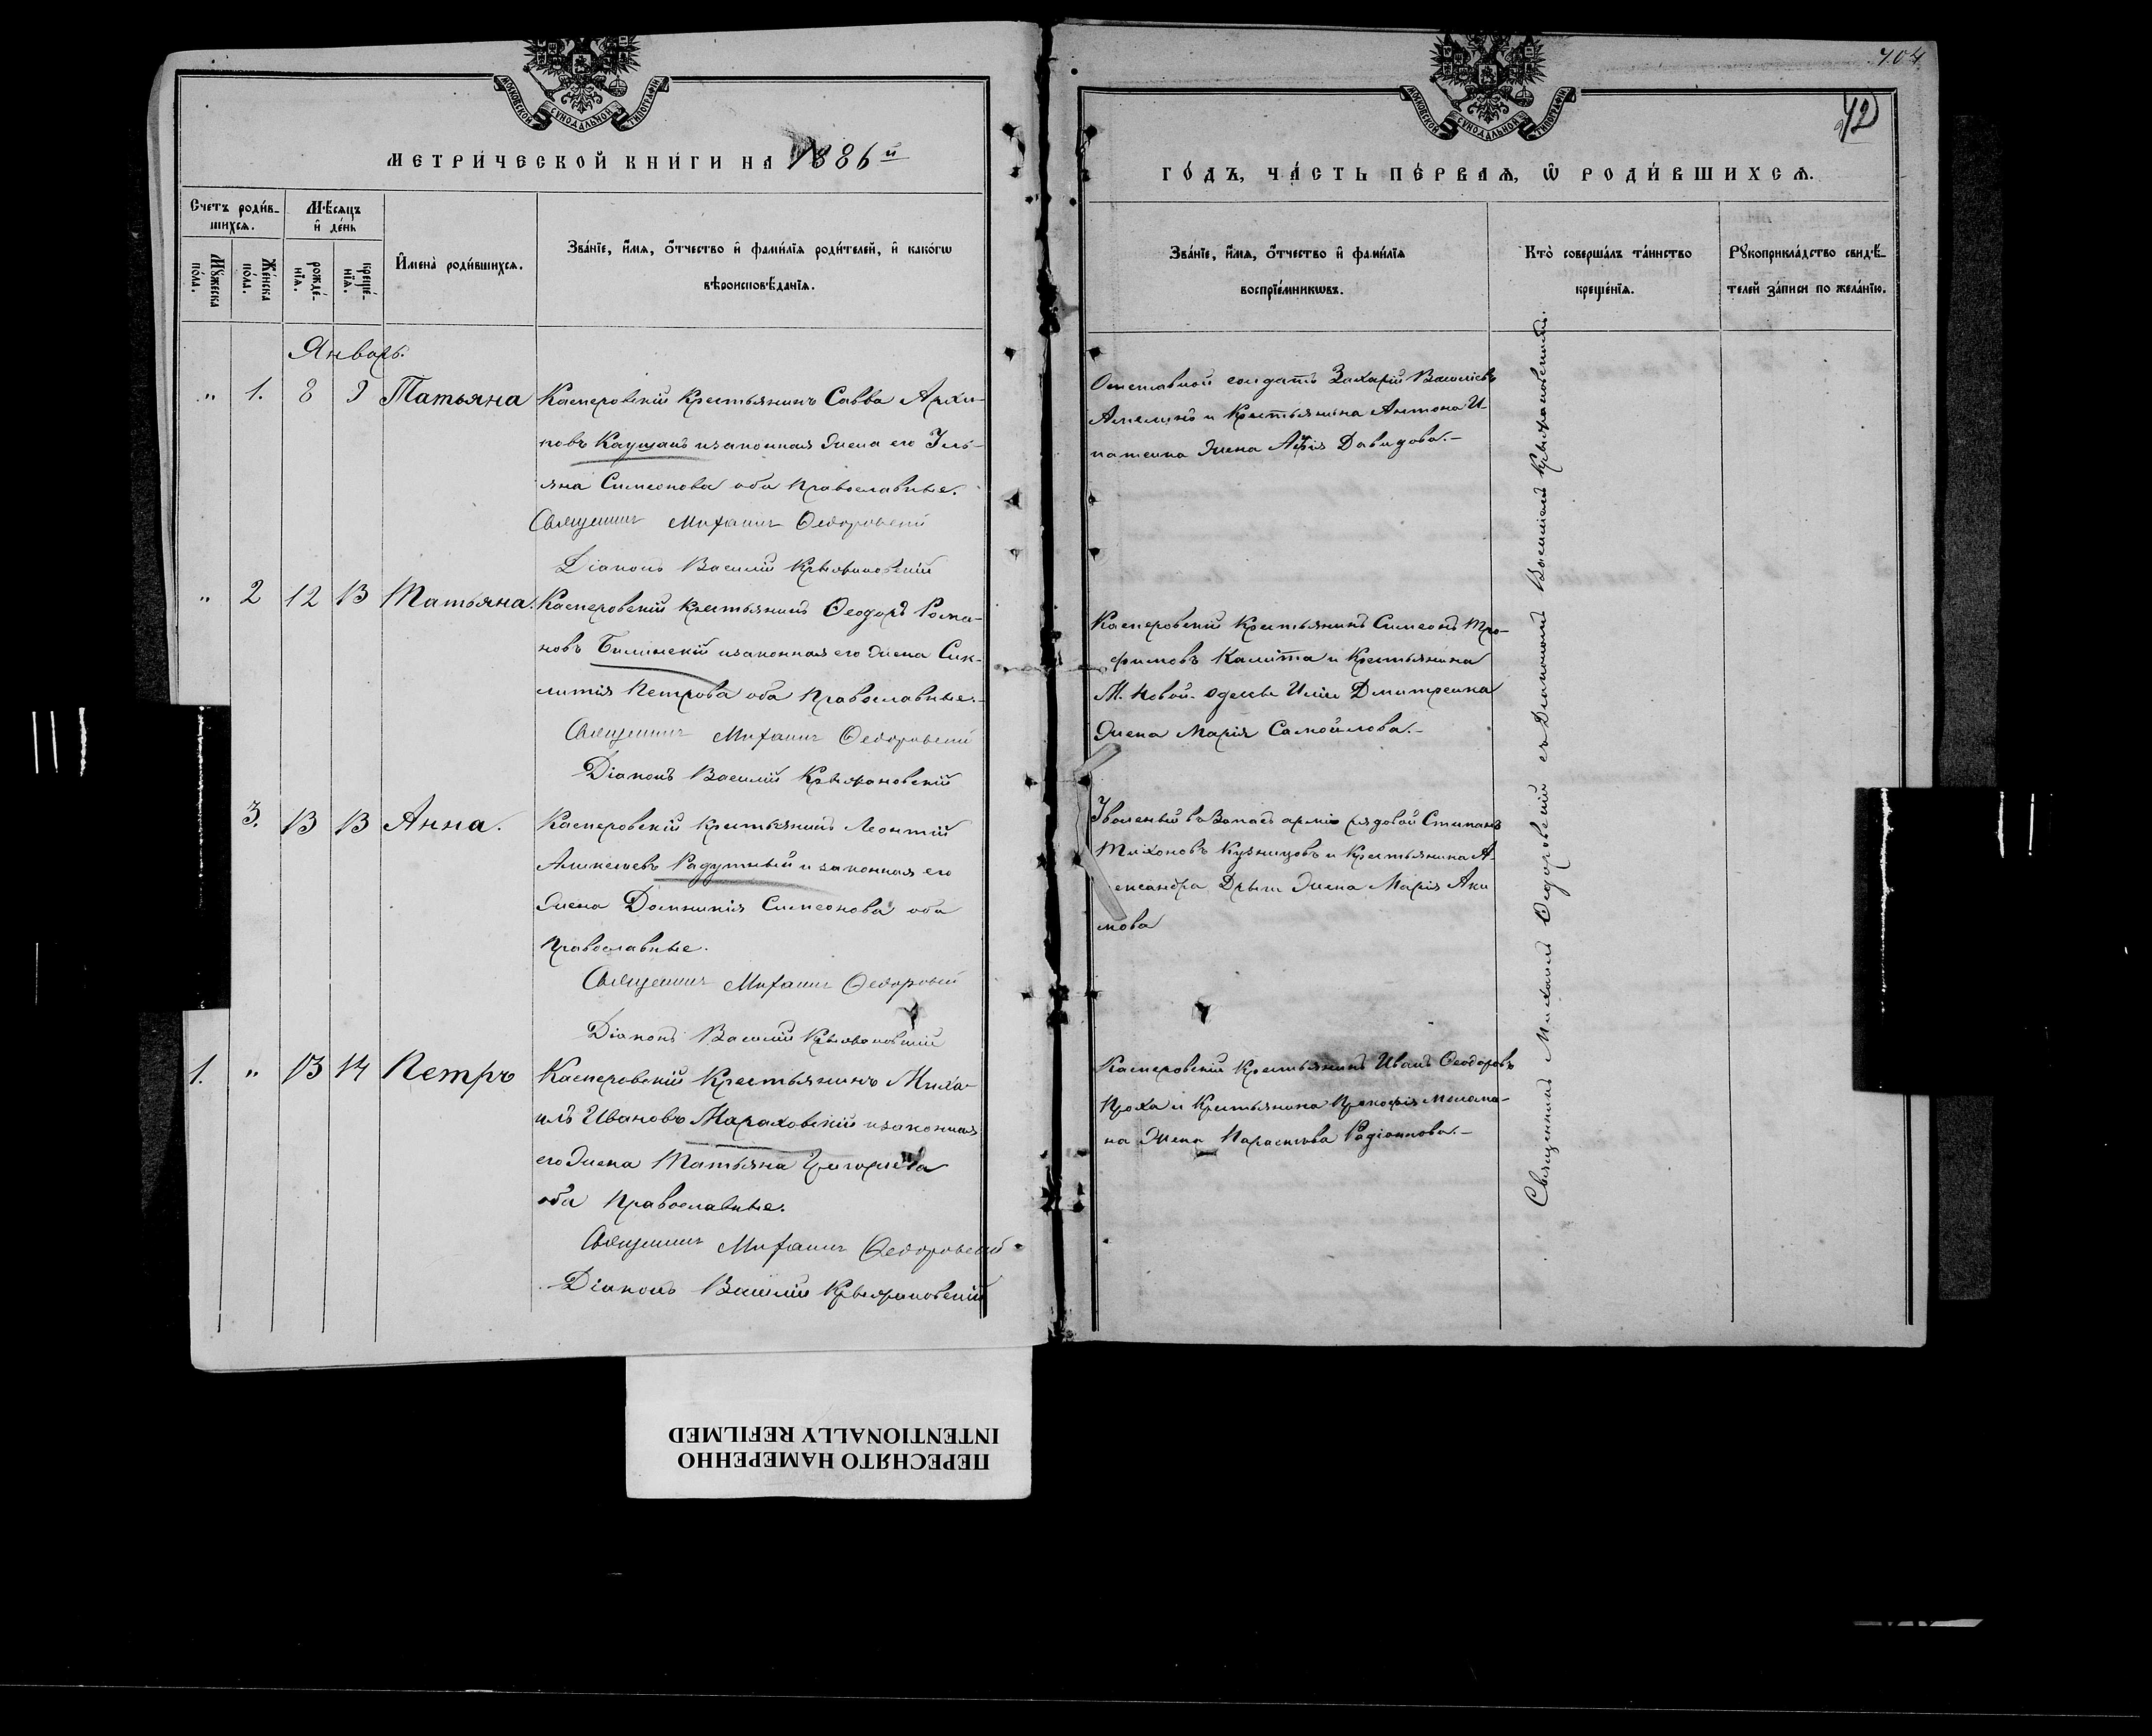 704
МОСКОВСКОЙ СѴНОДАЛЬНОЙ ТИПОГРАФІИ
МЕТРИ́ЧЕСКОЙ КНИ́ГИ НА 1886й
Счетъ роди́в-
шихсѧ.
Мѣ́сѧцъ
и҆ де́нь
Мꙋ́жеска
по́ла.
Же́нска
по́ла.
рожде́-
нїѧ.
креще́-
нїѧ.
И҆мена̀ роди́вшихсѧ.
Зва́нїе, и҆́мѧ, о҆́тчество и҆ фами́лїѧ роди́телей, и҆ како́гѡ
вѣроисповѣ́данїѧ.
Январь.
" 1. 8 9 Татьяна
Касперовскій Крестьянинъ Савва Архи-
повъ Каушанъ и законная жена его Іуль-
яна Симеонова оба Православные.
Священникъ Михаилъ Ѳедоровскій
Діаконъ Василій Крыжановскій
" 2 12 13 Татьяна.
Касперовскій Крестьянинъ Ѳеодоръ Рома-
новъ Билинскій и законная его жена Син-
клитія Петрова оба Православные.-
Священникъ Михаилъ Ѳедоровскій
Діаконъ Василій Крыжановскій
3. 13 13 Анна.
Касперовскій Крестьянинъ Леонтій
Алексеевъ Радутный и законная его
жена Домникія Симеонова оба
Православные.
Священникъ Михаилъ Ѳедоровскій
Діаконъ Василій Крыжановскій
1. " 13 14 Петръ
Касперовскій Крестьянинъ Миха-
илъ Ивановъ Мараховскій и законная
его жена Татьяна Григорьева
оба Православные.
Священникъ Михаилъ Ѳедоровскій
Діаконъ Василій Крыжановскій
МОСКОВСКОЙ СѴНОДАЛЬНОЙ ТИПОГРАФІИ
42
ГО́ДЪ, ЧА́СТЬ ПЕ́РВАѦ, Ѡ҆ РОДИ́ВШИХСѦ.
Зва́нїе, и҆́мѧ, о҆́тчество и҆ фами́лїѧ
воспрїе́мникѡвъ.
Кто̀ соверша́лъ та́инство
креще́нїѧ.
Рꙋкоприкла́дство свидѣ́-
телей за́писи по жела́нїю.
Отставной солдатъ Захарій Васильевъ
и Крестьянина Антона И-
жена Давидова.-
Касперовскій Крестьянинъ Симеонъ Тро-
фимовъ Калита и Крестьянина
М. Новой-Одессы Иліи Дмитренка
жена Марія Самойлова.-
Уволеный въ Запасъ арміи рядовой Стипанъ
Тихоновъ Кузницовъ и Крестьянина А-
лександра жена Марія Аки
мова
Касперовскій Крестьянинъ Иванъ Ѳеодоровъ
Проха и Крестьянина Прокофія
на жена Параскева Радіонова.-
Священникъ Михаилъ Ѳедоровскій съ Діакономъ Василіемъ Крыжановскимъ.
ПЕРЕСНЯТО НАМЕРЕННО
INTENTIONALLY REFILMED